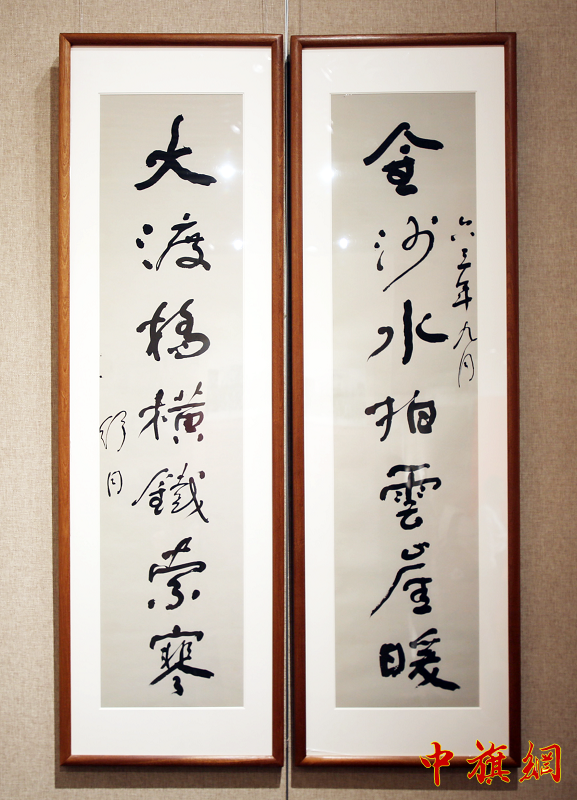 金沙水拍雲崖暖
六三年九月
大渡橋橫鐵索寒
舒同
中旗網